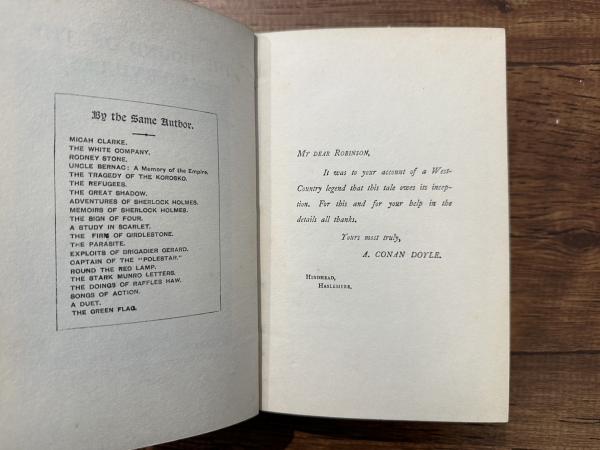 By the Same Author.
MICAH CLARKE.
THE WHITE COMPANY.
RODNEY STONE.
UNCLE BERNAC: A Memory of the Empire.
THE TRAGEDY OF THE KOROSKO.
THE REFUGEES.
THE GREAT SHADOW.
ADVENTURES OF SHERLOCK HOLMES.
MEMOIRS OF SHERLOCK HOLMES.
THE SIGN OF FOUR.
A STUDY IN SCARLET.
THE FIRM OF GIRDLESTONE.
THE PARASITE.
EXPLOITS OF BRIGADIER GERARD.
CAPTAIN OF THE "POLESTAR."
ROUND THE RED LAMP.
THE STARK MUNRO LETTERS.
THE DOINGS OF RAFFLES HAW.
SONGS OF ACTION.
A DUET.
THE GREEN FLAG.
MY DEAR ROBINSON,
It was to your account of a West-
Country legend that this tale owes its incep-
tion. For this and for your help in the
details all thanks.
Yours most truly,
A. CONAN DOYLE.
HINDHEAD,
HASLEMERE.